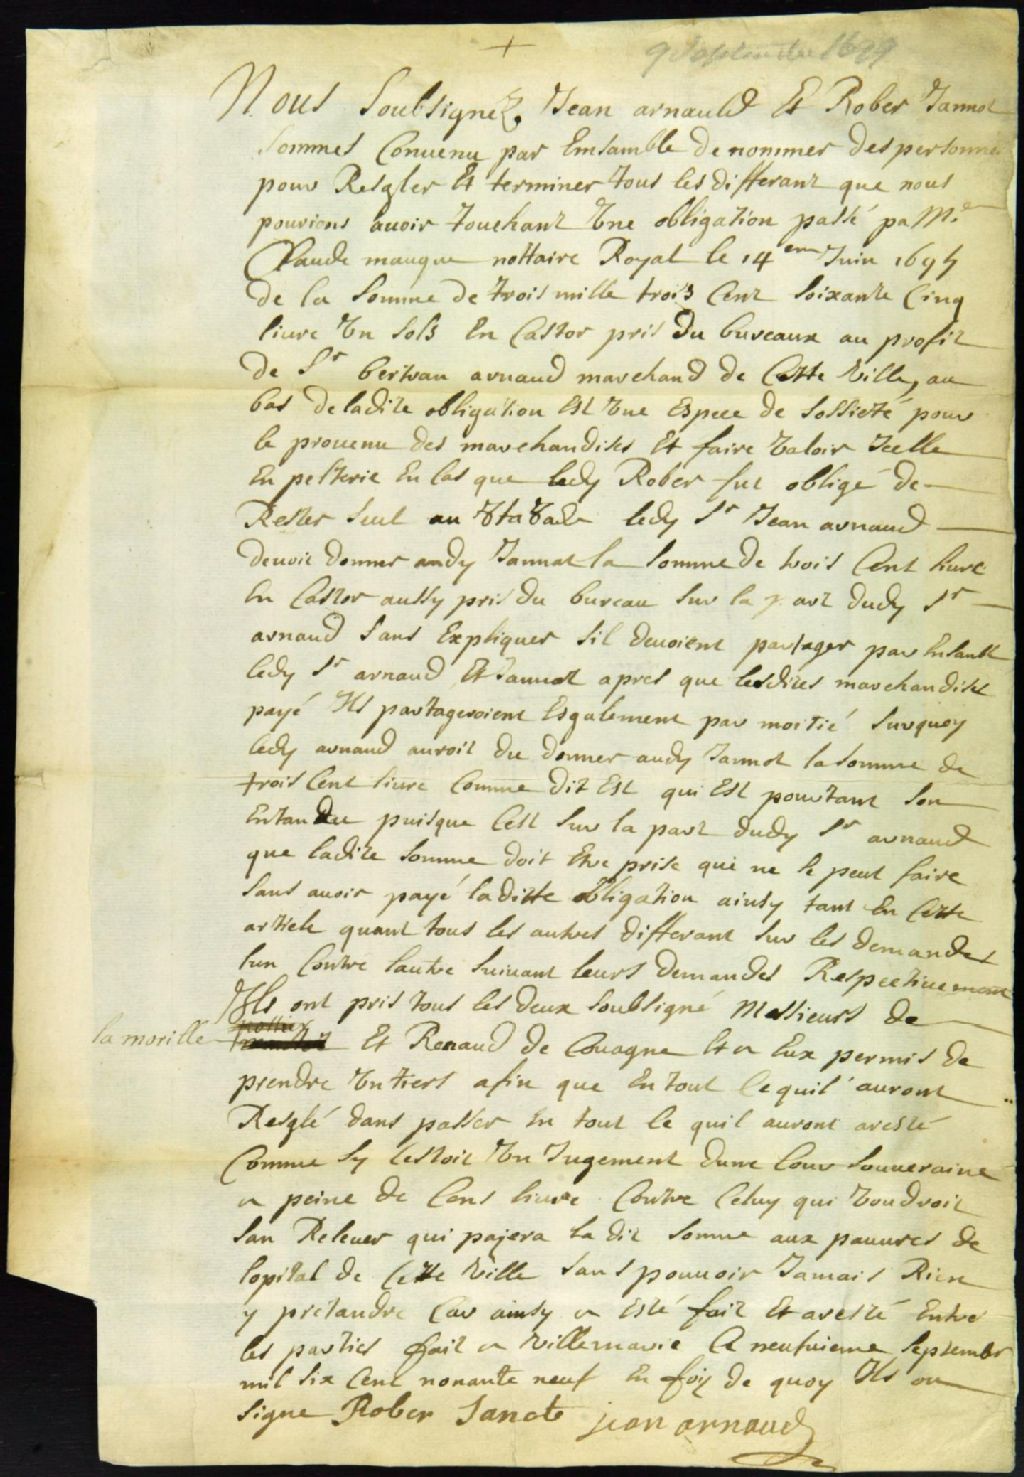 9 Septembre 1699
Nous Soubsignez Jean arnauld Et Rober Jannot
Sommes Convenu par Emsamble de nommer des personne
pour Resgler Et terminer tous les differant que nous
pouvions avoir touchant Une obligation passé pa Mr
Claude maugue nottaire Royal le 14em Juin
de la Somme de trois mille trois Cent Soixante Cinq
livre Un Sols En Castor pris du bureaux au profit
de Sr bertran arnaud marchand de Cette Ville, au
bas de ladite obligation Est Une Espece de Sossieté pour
le prouenu des marchandises Et faire Valoir Icelle
En pelterie En Cas que ledy Rober fut obligé de
Rester Seul au ledy Sr Jean arnaud
devoit donner audy Jannot la Somme de trois Cent livre
En Castor aussy pris du bureau Sur la part dudy Sr
arnaud Sans Expliquer Sil devoient partager par Ensamble
ledy Sr arnaud Et Jannot apres que lesdites marchandises
payé Ils partageroient Esgalement par moitié Surquoy
ledy arnaud auroit du donner audy Jannot la Somme de
trois Cent livre Comme dit Est qui Est pourtant Son
Entandu puisque Cest Sur la part dudy Sr arnaud
que ladite Somme doit Etre prise qui ne Se peut faire
Sans avoir payé laditte obligation ainsy tant En Cette
article quant tous les autres differant Sur les demandes
lun Contre lautre Suivant leurs demandes Respectivement
Ils ont pris tous les deux Soubsigné Messieurs de
la morille Et Renaud de Couagne Et a Eux permis de
prendre Un tiers afin que En tout Ce quil auront
Resglé dans passer En tout Ce quil auront aresté
Comme Sy Cestoit Un Jugement dune Cour Souveraine
a peine de Cens livre Contre Celuy qui Voudroit
San Relever qui pajera la dit Somme aux pauvres de
lopital de Cette Ville Sans pouvoir Jamais Rien
y pretandre Car ainsy a Esté fait Et aresté Entre
les parties fait a Villemarie Ce neufvieme Septembr
mil Six Cent nonante neuf En foy de quoy Ils on
Signe Rober Janote jean arnaud